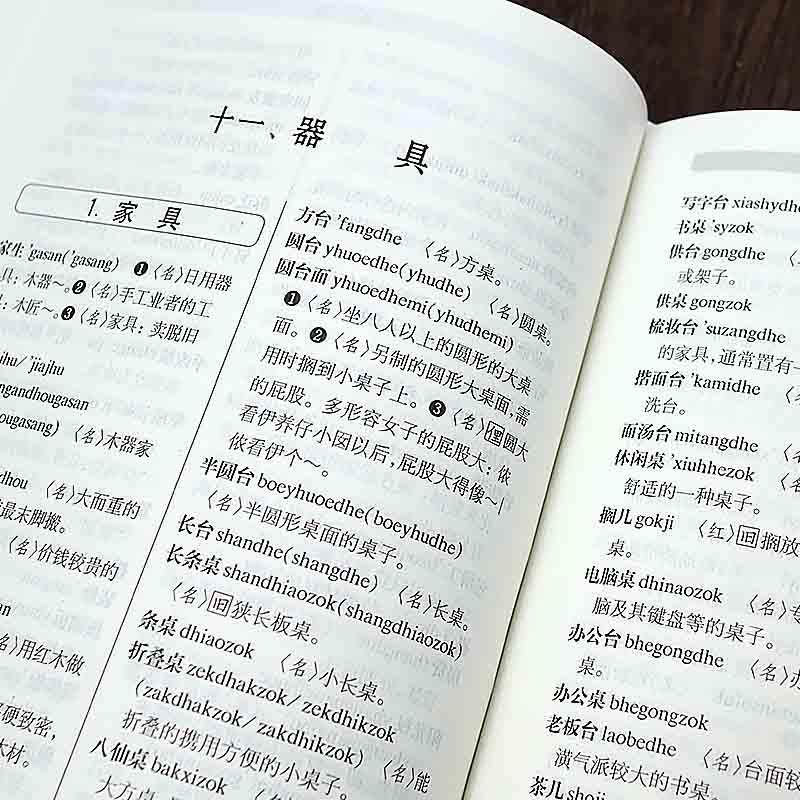 十一、器 具
1. 家 具
家生 'gasan('gasang) ❶〈名〉日用器
具：木器～。❷〈名〉手工业者的工
具：木匠～。❸〈名〉家具：卖脱旧
'jiajhu
〈名〉木器家
〈名〉大而重的
最末脚搬。
〈名〉价钱较贵的
〈名〉用红木做
硬致密，
木材。
方台 'fangdhe 〈名〉方桌。
圆台 yhuoedhe(yhudhe) 〈名〉圆桌。
圆台面 yhuoedhemi(yhudhemi)
❶〈名〉坐八人以上的圆形的大桌
面。❷〈名〉另制的圆形大桌面，需
用时搁到小桌子上。❸〈名〉圆大
的屁股。多形容女子的屁股大：侬
看伊养仔小囡以后，屁股大得像～|
侬看伊个～。
半圆台 boeyhuoedhe(boeyhudhe)
〈名〉半圆形桌面的桌子。
长台 shandhe(shangdhe) 〈名〉长桌。
长条桌 shandhiaozok(shangdhiaozok)
〈名〉回狭长板桌。
条桌 dhiaozok 〈名〉小长桌。
折叠桌 zekdhakzok/zekdhikzok
(zakdhakzok/zakdhikzok) 〈名〉能
折叠的携用方便的小桌子。
八仙桌 bakxizok 〈名〉
大方桌
写字台 xiashydhe
书桌 'syzok
供台 gongdhe 〈名〉
或架子。
供桌 gongzok
梳妆台 'suzangdhe
的家具，通常置有一
揩面台 'kamidhe
洗台。
面汤台 mitangdhe
休闲桌 'xiuhhezok
舒适的一种桌子。
搁几 gokji 〈红〉回搁放
桌。
电脑桌 dhinaozok 〈名〉专
脑及其键盘等的桌子。
办公台 bhegongdhe 〈名〉办
桌。
办公桌 bhegongzok
老板台 laobedhe 〈名〉台面较
潢气派较大的书桌。
茶几 shoji